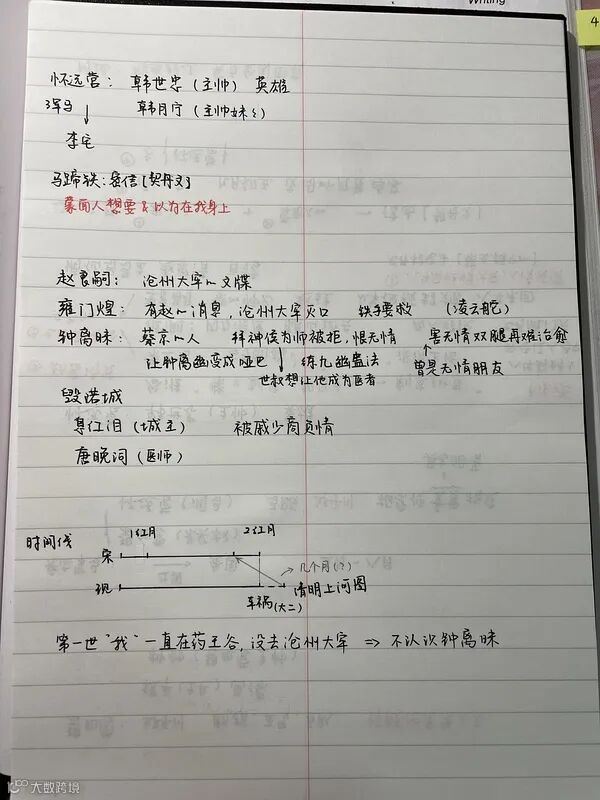 Writing
4
怀远营： 韩世忠（主帅） 英雄
浑马 韩月宁（主帅妹妹）
李宅
马蹄铁：岳信[契丹文]
蒙面人想要&以为在我身上
赵良嗣： 沧州大牢~文牒
雍门煋： 有赵~消息，沧州大牢灭口 铁手要救 （凌云舵）
钟离昧： 蔡京~人 拜神侯为师被拒，恨无情 害无情双腿再难治愈
让钟离幽变成哑巴 练九幽蛊法 曾是无情朋友
世叔想让他成为医者
毁诺城
息红泪（城主） 被戚少商负情
唐晚词（医师）
时间线 1红月 2红月
宋 几个月(?)
现 车祸(大二) 清明上河图
第一世“我”一直在药王谷，没去沧州大牢 => 不认识钟离昧
大数跨境